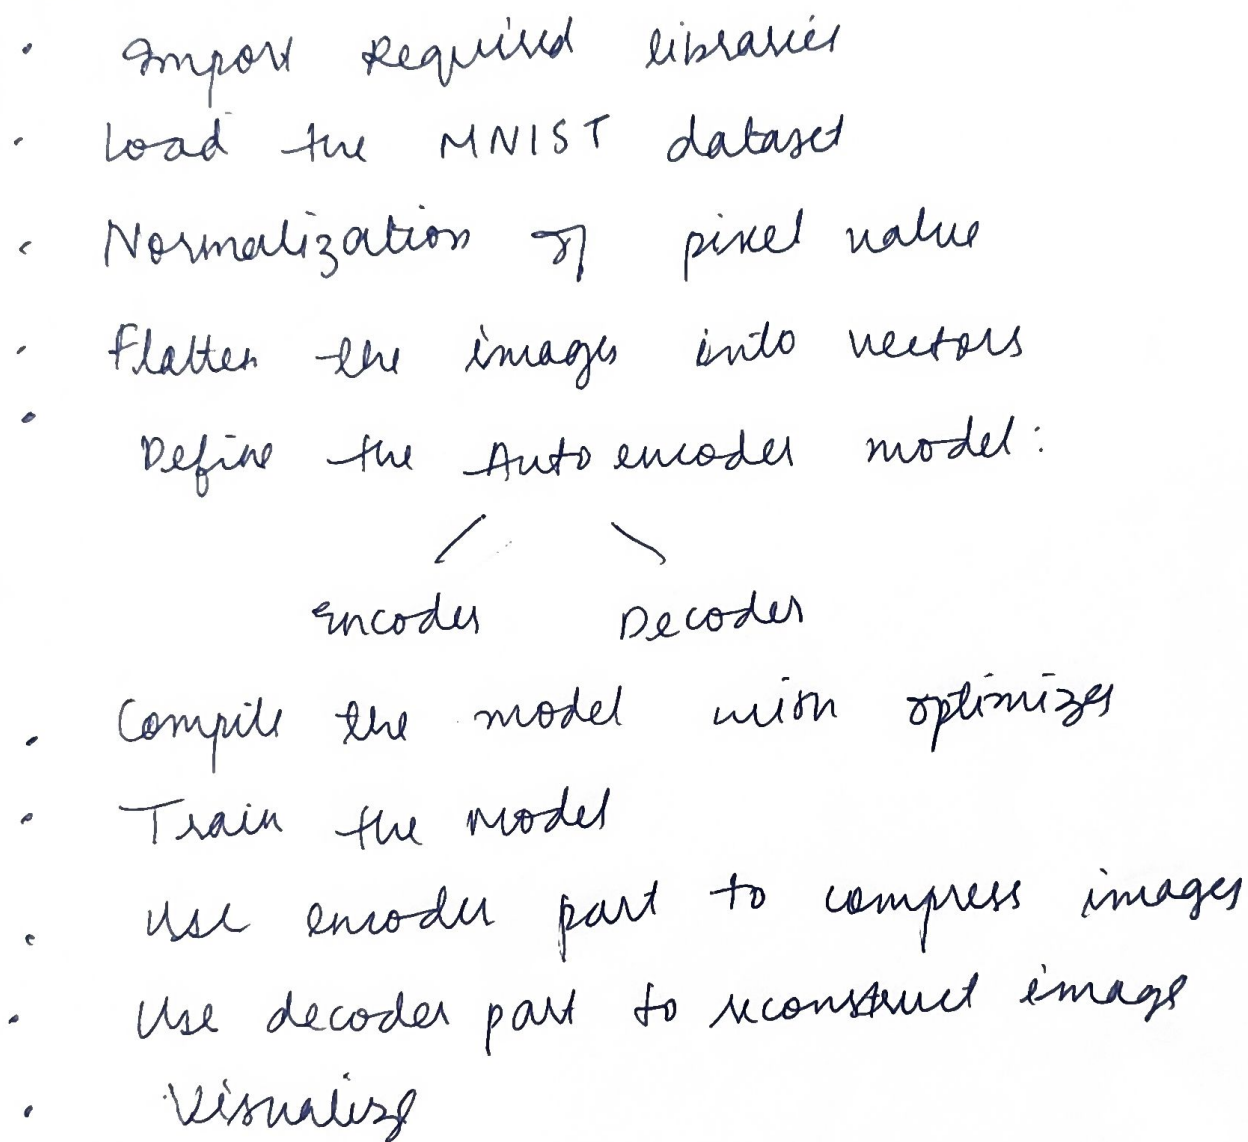 • Import Required libraries
• Load the MNIST dataset
• Normalization of pixel value
• Flatten the images into vectors
• Define the Autoencoder model:
Encoder Decoder
• Compile the model with optimizer
• Train the model
• Use encoder part to compress images
• Use decoder part to reconstruct image
• Visualize